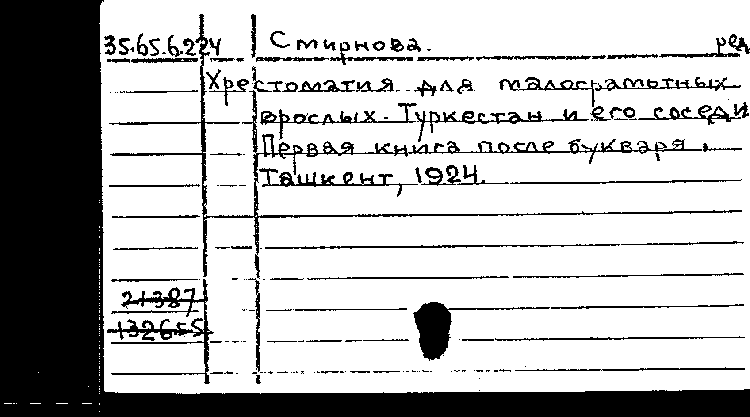 35.65.6.224 Смирнова. ред
Хрестоматия для малограмотных
взрослых. Туркестан и его соседи
Первая книга после букваря.
Ташкент, 1924.
21387
132655